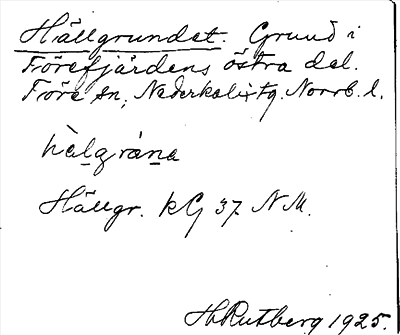 Hällgrundet. Grund i
Törefjärdens östra del.
Töre sn, Nederkalix tg. Norrb. l.
hälgråna
Hällgr. kG 37 N M.
H Rutberg 1925.